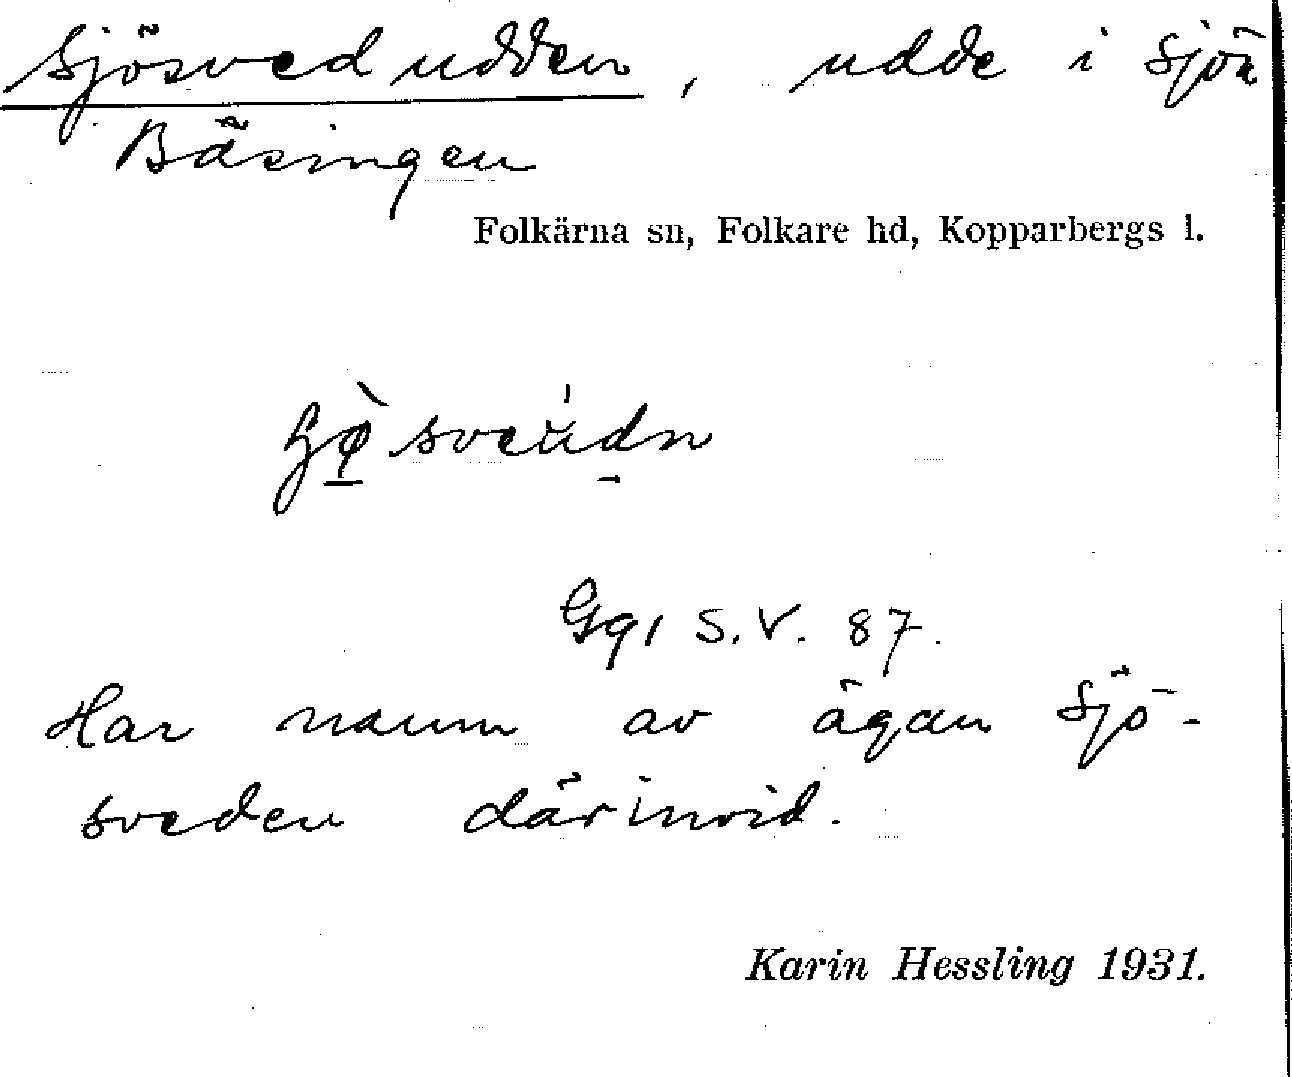 Sjösvedudden, udde i sjön
Bäsingen
Folkärna sn, Folkare hd, Kopparbergs l.
S.V. 87.
Har namn av ägan Sjö-
sveden därinvid.
Karin Hessling 1931.